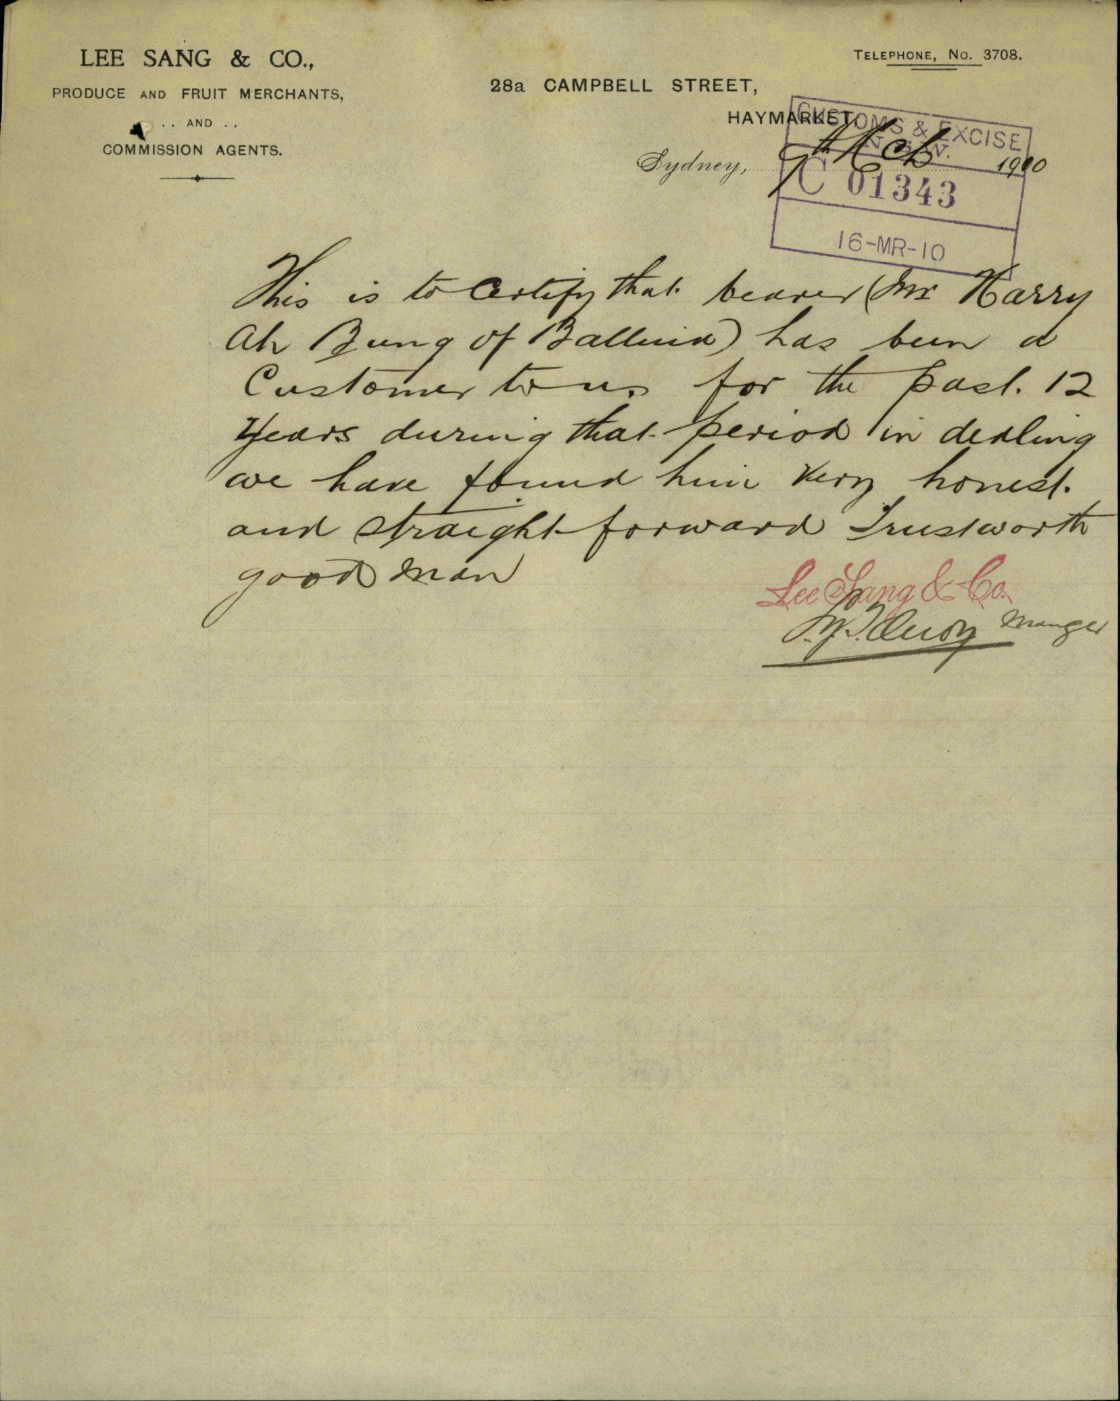 LEE SANG & CO.,
PRODUCE AND FRUIT MERCHANTS,
.. AND ..
COMMISSION AGENTS.
TELEPHONE, NO. 3708.
28a CAMPBELL STREET,
HAYMARKET,
Sydney, 9th Mch 1910
CUSTOMS & EXCISE
N.S.W.
C 01343
16-MR-10
This is to certify that bearer (Mr Harry
Ah Bung of Ballina) has been a
Customer to us for the past 12
Years during that period in dealing
we have found him very honest
and straightforward Trustworth
good man
Lee Sang & Co.
Manger